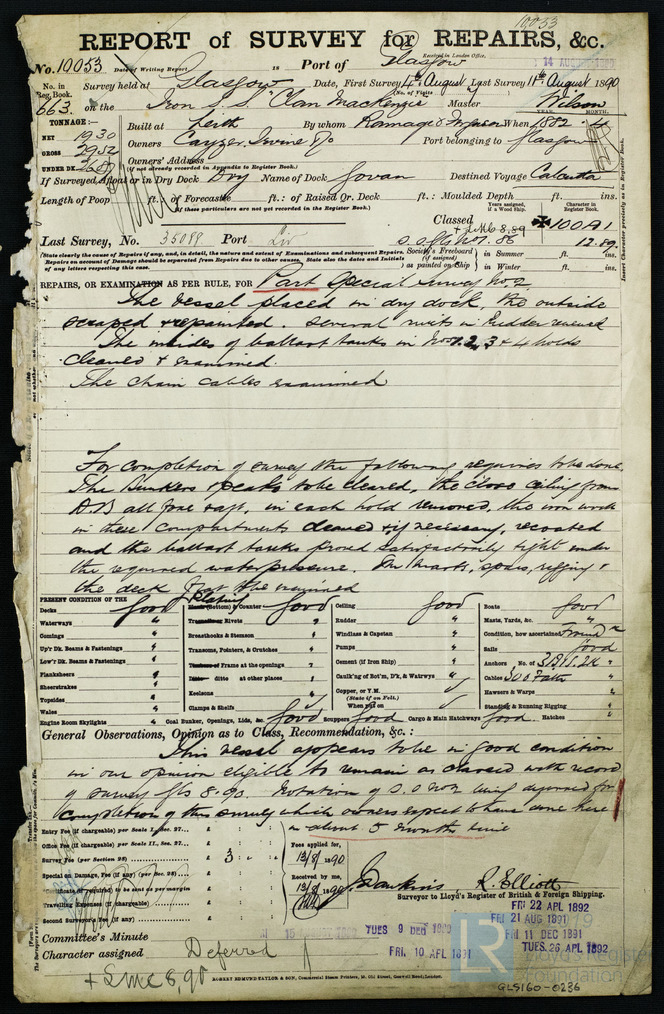 10053
REPORT of SURVEY for REPAIRS, &c.
Received in London Office.
No. 10053 Date of Writing Report 18 Port of Glasgow 14 AUGUST
No. in Reg. Book. Survey held at Glasgow Date, First Survey 4th August Last Survey 11th August 1890
(No. of Visits
663 on the Iron S.S. "Clan Mackenzie" Master Wilson
TONNAGE:— YEAR. MONTH.
NET 1930 Built at Leith By whom Ramage & Ferguson When 1882
GROSS 2952 Owners Cayzer, Irvine & Co Port belonging to Glasgow
UNDER DK. Owners' Address
(If not already recorded in Appendix to Register Book.)
If Surveyed Afloat or in Dry Dock Dry Name of Dock Govan Destined Voyage Calcutta
Length of Poop ft.: of Forecastle ft.: of Raised Qr. Deck ft.: Moulded Depth ft. ins.
(If these particulars are not yet recorded in the Register Book.)
Years assigned, if a Wood Ship. Character in Register Book.
Classed ✠100A1
+LMC 8,89
Last Survey, No. 35099 Port Liv 12.89
(State clearly the cause of Repairs if any, and, in detail, the nature and extent of Examinations and subsequent Repairs. Repairs on account of Damage should be separated from Repairs due to other causes. State also the dates and Initials of any letters respecting this case.
Society's Freeboard (if assigned) as painted on Ship in Summer ft. ins.
in Winter ft. ins.
Insert Character precisely as in Register Book.
REPAIRS, OR EXAMINATION AS PER RULE, FOR Part Special Survey No. 2
The vessel placed in dry dock, the outside
scraped & repainted. Several rivets in Rudder renewed
The insides of ballast tanks in Nos 1. 2, 3 & 4 holds
cleaned & examined.
The chain cables examined
For completion of survey the following requires to be done.
The Bunkers & peaks to be cleared, the close ceiling from
all fore & aft, in each hold removed, the iron work
in these compartments cleaned & if necessary, recoated
and the ballast tanks proved satisfactorily tight under
the required water pressure. The masts, spars, rigging &
the deck examined
PRESENT CONDITION OF THE
Decks Good
Waterways "
Comings "
Up'r Dk. Beams & Fastenings "
Low'r Dk. Beams & Fastenings "
Planksheers "
Sheerstrakes "
Topsides "
Wales "
Engine Room Skylights "
Plating
(Bottom) & Counter Good
Rivets "
Breasthooks & Stemson "
Transoms, Pointers, & Crutches "
Timbers of Frame at the openings "
Ditto ditto at other places "
Keelsons "
Clamps & Shelfs
Coal Bunker, Openings, Lids, &c. Good
Ceiling Good
Rudder "
Windlass & Capstan "
Pumps "
Cement (if Iron Ship) "
Caulking of Bot'm, D'k, & Watrwys "
Copper, or Y.M.
(State if on Felt.)
When put on
Scuppers Good
Cargo & Main Hatchways Good
Boats Good
Masts, Yards, &c. "
Condition, how ascertained From Dk
Sails Good
Anchors No. of 3B, 1S, 2K "
Cables 300 Fath "
Hawsers & Warps "
Standing & Running Rigging "
Hatches "
General Observations, Opinion as to Class, Recommendation, &c.:
This vessel appears to be in good condition
in our opinion eligible to remain as classed with record
of survey 8.90. Notation of S.S No 2 being deferred for
completion of this survey which owners expect to have done here
in about 5 months time
Entry Fee (if chargeable) per Scale I., Sec. 27... £
Office Fee (if chargeable) per Scale II., Sec. 27... £
Survey Fee (per Section 28) £ 3
Special on Damage, Fee (if any) (per Sec. 28) £
Certificate (if required) to be sent as per margin
Travelling Expenses (if chargeable) £
Second Surveyor's Fee (if any) £
Fees applied for,
13/8/1890
Received by me,
13/8/1890
J. Dawkins R. Elliott
Surveyor to Lloyd's Register of British & Foreign Shipping.
FRI 22 APL 1892
FRI 21 AUG 1891
TUES 9 DEC 1890 FRI 11 DEC 1891
FRI. 10 APL 1891 TUES. 26 APL 1892
Committee's Minute
Character assigned Deferred
+LMC 8,90
ROBERT EDMUND TAYLOR & SON, Commercial Steam Printers, 19, Old Street, Goswell Road, London.
LR
Lloyd's Register
Foundation
GLS160-0236